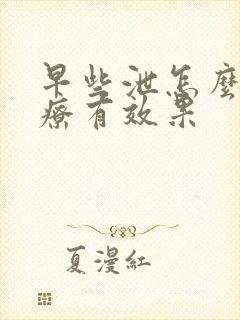 早些泄怎麼
療有效果
夏漫紅